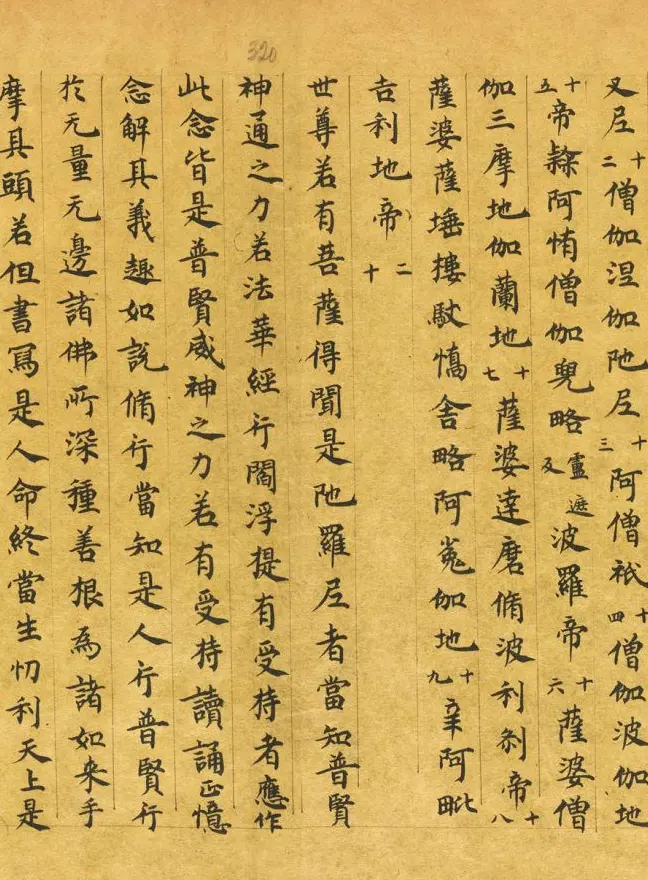 320
叉尼十二僧伽涅伽陁尼十三阿僧祇十四僧伽波伽地
十五帝隸阿惰僧伽兜略盧遮反波羅帝十六薩婆僧
伽三摩地伽蘭地十七薩婆達磨脩波利剎帝十八
薩婆薩埵樓馱憍舍略阿㝹伽地十九辛阿毗
吉利地帝二十
世尊若有菩薩得聞是陁羅尼者當知普賢
神通之力若法華經行閻浮提有受持者應作
此念皆是普賢威神之力若有受持讀誦正憶
念解其義趣如說脩行當知是人行普賢行
於无量无邊諸佛所深種善根為諸如來手
摩其頭若但書寫是人命終當生忉利天上是